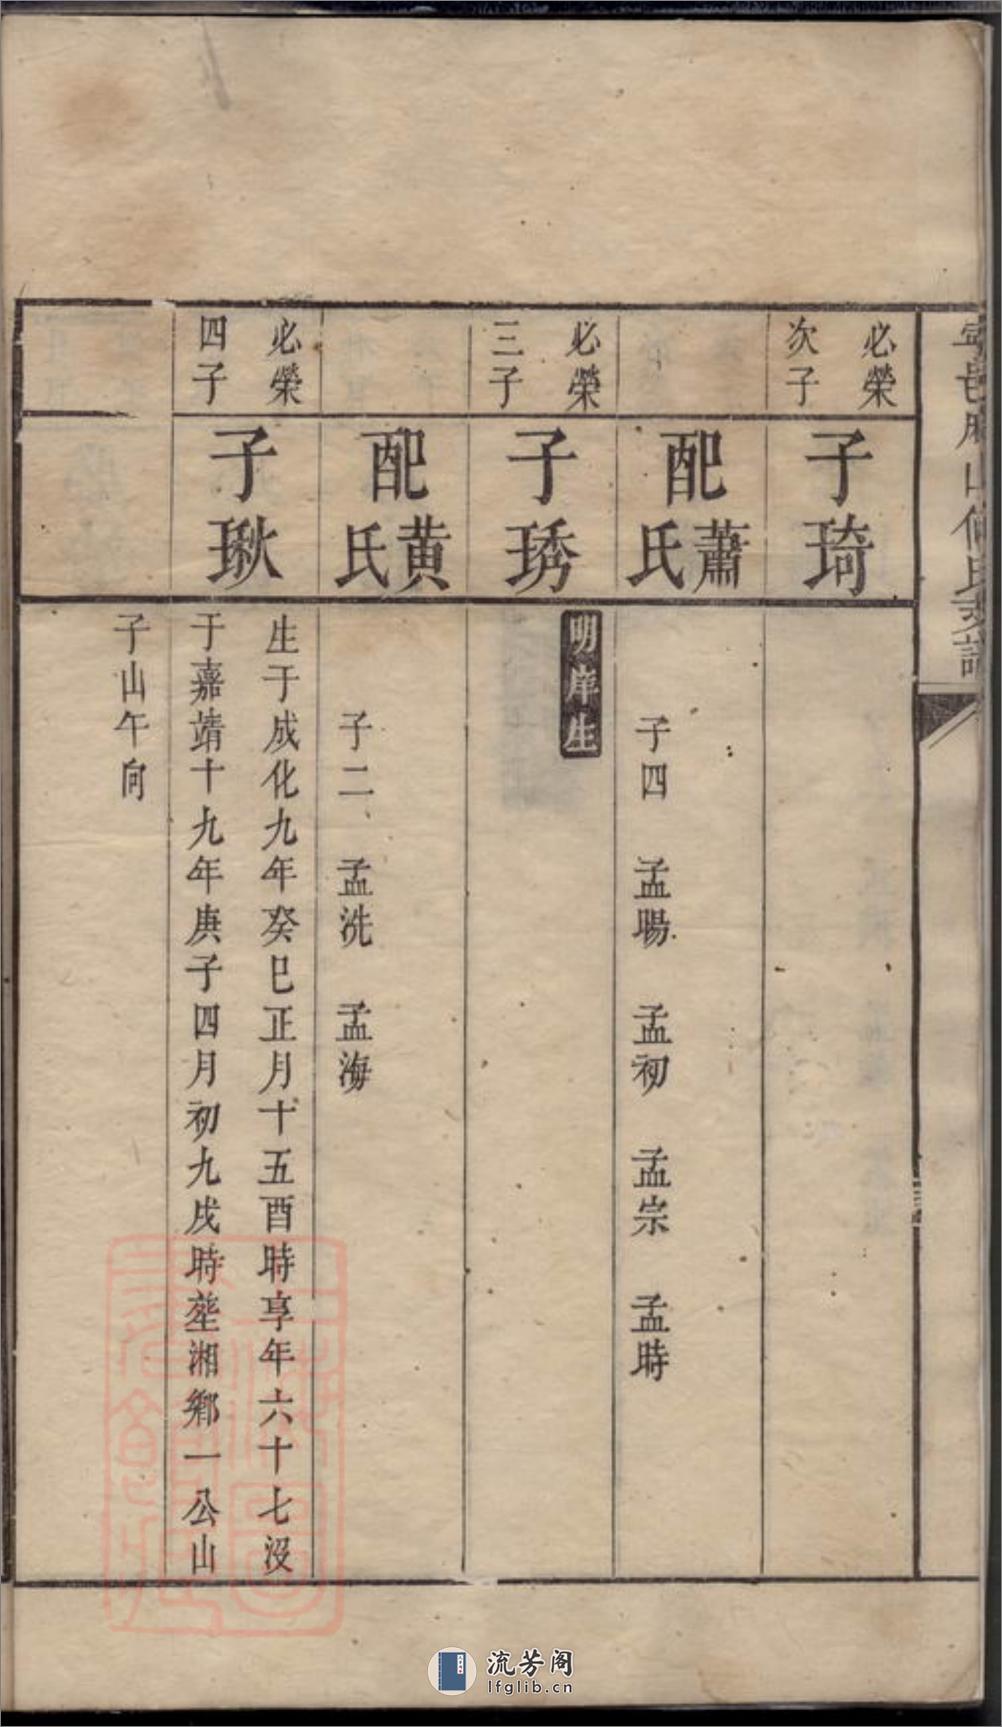 必榮
次子
子琦
配蕭氏
子四　孟暘　孟初　孟宗　孟時
必榮
三子
子琇
明庠生
配黃氏
子二　孟洗　孟海
必榮
四子
子瑘
生于成化九年癸巳正月十五酉時享年六十七沒
于嘉靖十九年庚子四月初九戌時塟湘鄉一公山
子山午向
流芳阁
lfglib.cn